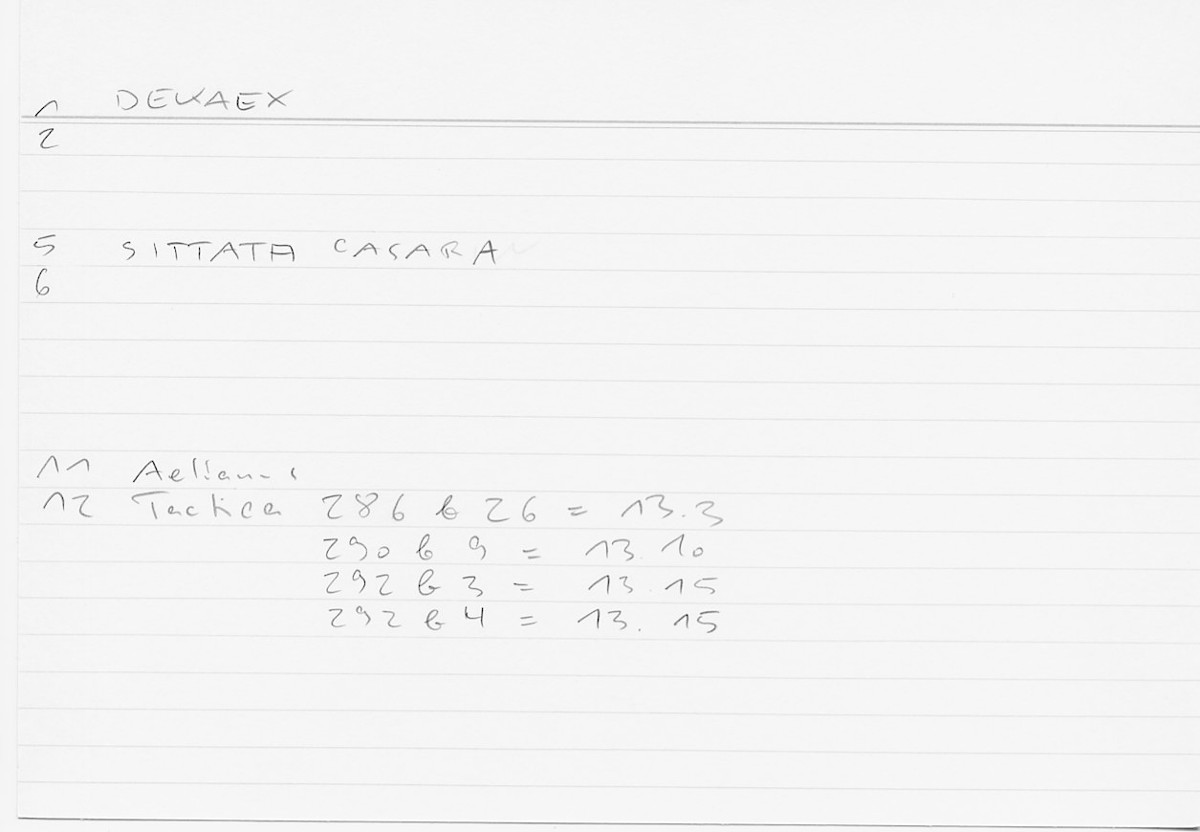 1 DEUAEX
2
5 SITTATA CASARA
6
11 Aelianus
12 Tactica 286 b 26 = 13.3
290 b 9 = 13.10
292 b 3 = 13.15
292 b 4 = 13.15